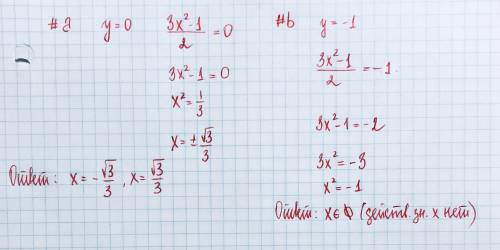 #a y=0 (3x²-1)/2 =0
3x²-1=0
x²=1/3
x=±√3/3
Ответ: x=-√3/3, x=√3/3
#b y=-1
(3x²-1)/2 =-1
3x²-1=-2
3x²=-3
x²=-1
Ответ: x∈ϕ (действ. зн. x нет)